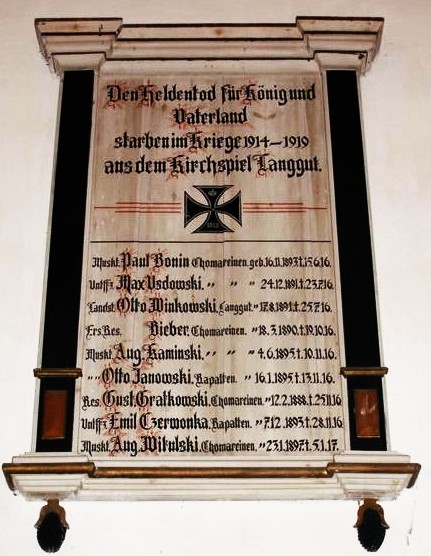 Den Heldentod für König und
Vaterland
starben im Kriege 1914–1919
aus dem Kirchspiel Langgut.
Muskt. Paul Bonin Chomareinen. geb. 16.11.1893 † 15.6.16.
Untffz Max Usdowski. " " " 24.12.1891 † 23.7.16.
Landst. Otto Winkowski, Langgut. " 17.8.1891 † 25.7.16.
Ers.Res. Bieber, Chomareinen. " 18.3.1890. † 19.10.16.
Muskt. Aug. Kaminski. " " " 4.6.1895 † 10.11.16.
" Otto Janowski, Rapatten. " 16.1.1895 † 13.11.16.
Res. Gust. Gratkowski, Chomareinen. " 12.2.1888 † 25.11.16
Untffz Emil Czerwonka, Rapatten. " 7.12.1893 † 28.11.16
Muskt. Aug. Witulski, Chomareinen. " 23.1.1897 † 5.1.17.